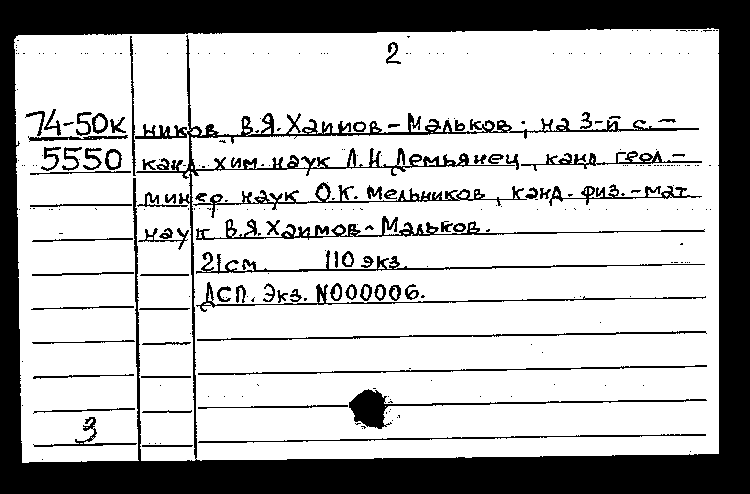 2
74-50к ников, В.Я. Хаимов-Мальков; на 3-й с.-
5550 канд. хим. наук Л.Н. Демьянец, канд. геол.-
минер. наук О.К. Мельников, канд. физ.-мат.
наук В.Я. Хаимов-Мальков.
21 см. 110 экз.
ДСП. Экз. N000006.
3